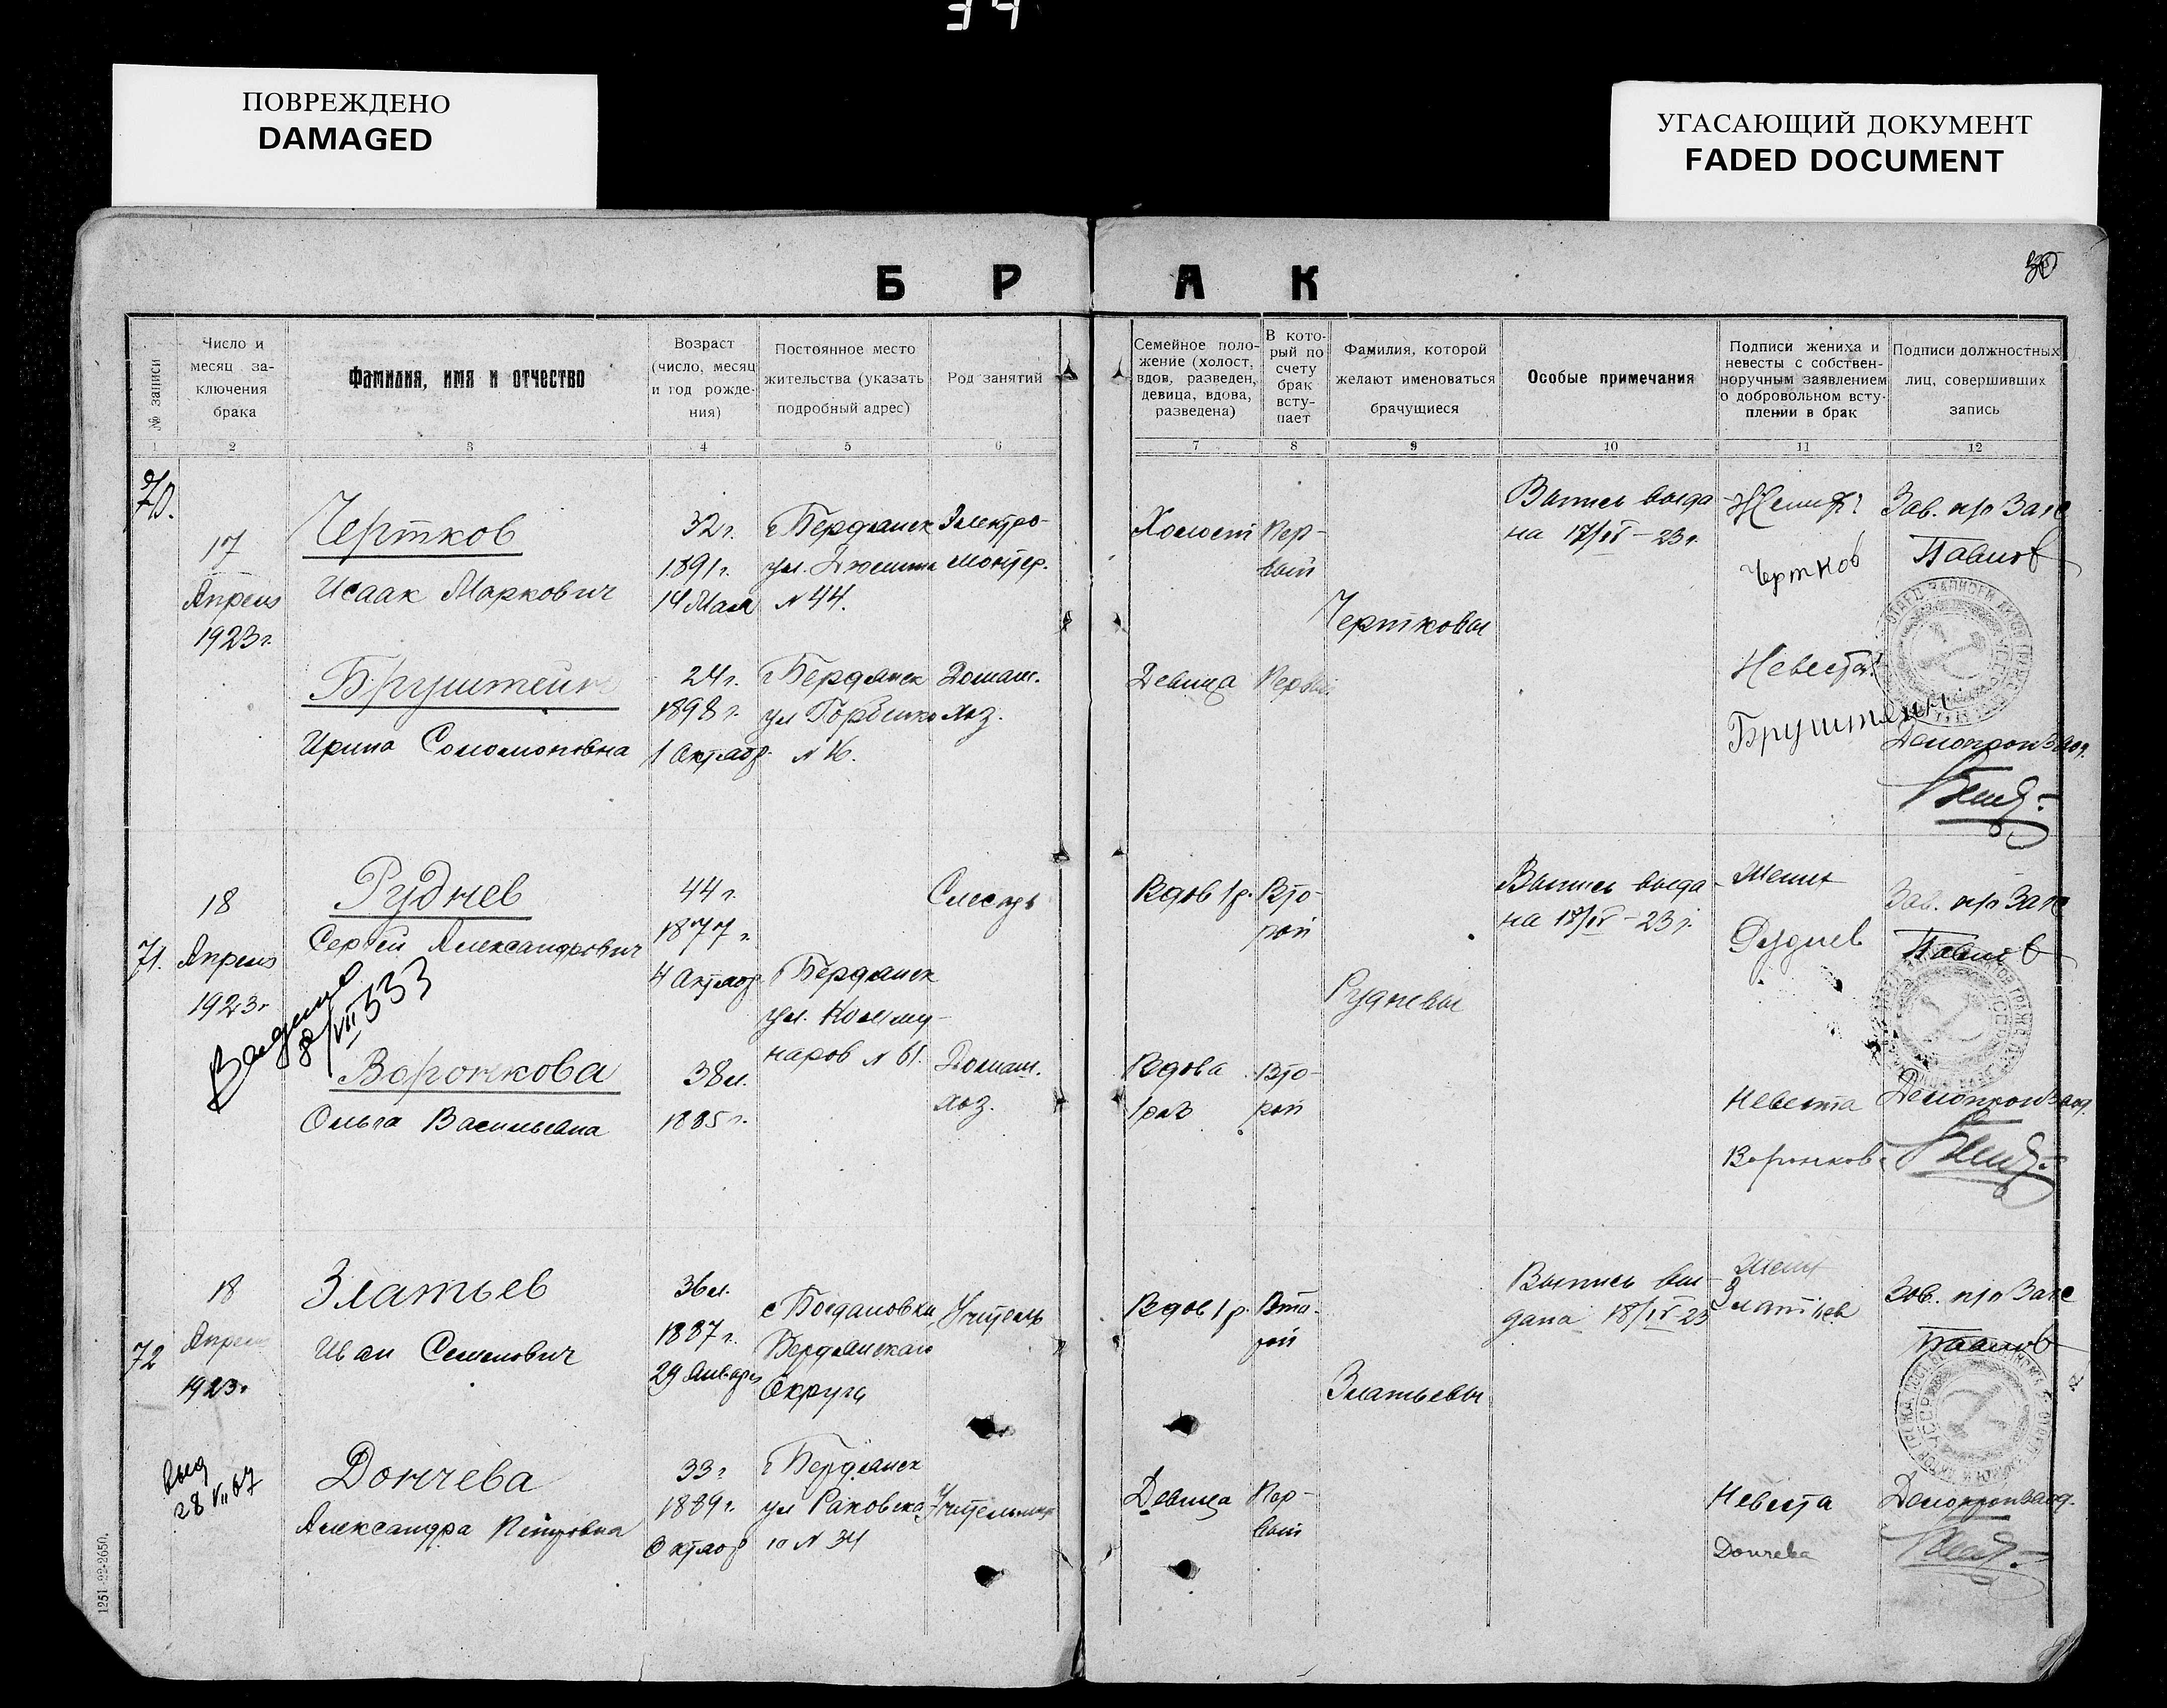 34
ПОВРЕЖДЕНО
DAMAGED
УГАСАЮЩИЙ ДОКУМЕНТ
FADED DOCUMENT
30
БРАК
№ записи
Число и месяц за-
ключения
брака
Фамилия, имя и отчество
Возраст
(число, месяц
и год рожде-
ния)
Постоянное место
жительства (указать
подробный адрес)
Род занятий
Семейное поло-
жение (холост,
вдов, разведен,
девица, вдова,
разведена)
В кото-
рый по
счету
брак
всту-
пает
Фамилия, которой
желают именоваться
брачущиеся
Особые примечания
Подписи жениха и
невесты с собствен-
норучным заявлением
о добровольном всту-
плении в брак
Подписи должностных
лиц, совершивших
запись
1 2 3 4 5 6 7 8 9 10 11 12
70.
17
Апреля
1923г.
Чертков
Исаак Маркович
32г.
1891г.
14 Мая
г Бердянск
ул. Дюмина
№ 44.
Электро-
монтер.
Холост
Пер-
вый
Чертковы
Выпись выда
на 17/IV - 23г.
Жених:
Чертков
Зав. п/о Загс
Павлов
Бруштейн
Ирина Соломоновна
24г.
1898г.
1 Октябр.
г Бердянск
ул Горбенко
№ 16.
Домаш.
хоз.
Девица
Первый
Невеста:
Бруштейн
Делопроизвод.
71.
18
Апреля
1923г
Руднев
Сергей Александрович
44г.
1877г.
4 Октябр
г Бердянск
ул. Комму-
наров № 61.
Слесарь
Вдов 1 р.
Вто-
рой
Рудневы
Выпись выда
на 18/IV - 23г.
Жених
Руднев
Зав. п/о Загс
Павлов
8/VII 333
Воронкова
Ольга Васильевна
38л.
1885г.
Домаш.
хоз.
Вдова
1 раз
Вто-
рой
Невеста
Воронкова
Делопроизвод.
72
18
Апреля
1923г
Златьев
Иван Семенович
36л.
1887г.
29 Января
с Богдановка,
Бердянского
Округа
Учитель
Вдов 1 р.
Вто-
рой
Златьевы
Выпись вы-
дана 18/IV-23
Жених
Златьев
Зав. п/о Загс
Павлов
выд
28 VII 67
Дончева
Александра Петровна
33г
1889г.
Октябр
г Бердянск
ул Раковско
го № 34
Учительница
Девица
Пер-
вый
Невеста
Дончева
Делопроизвод.
1251-22-2650.